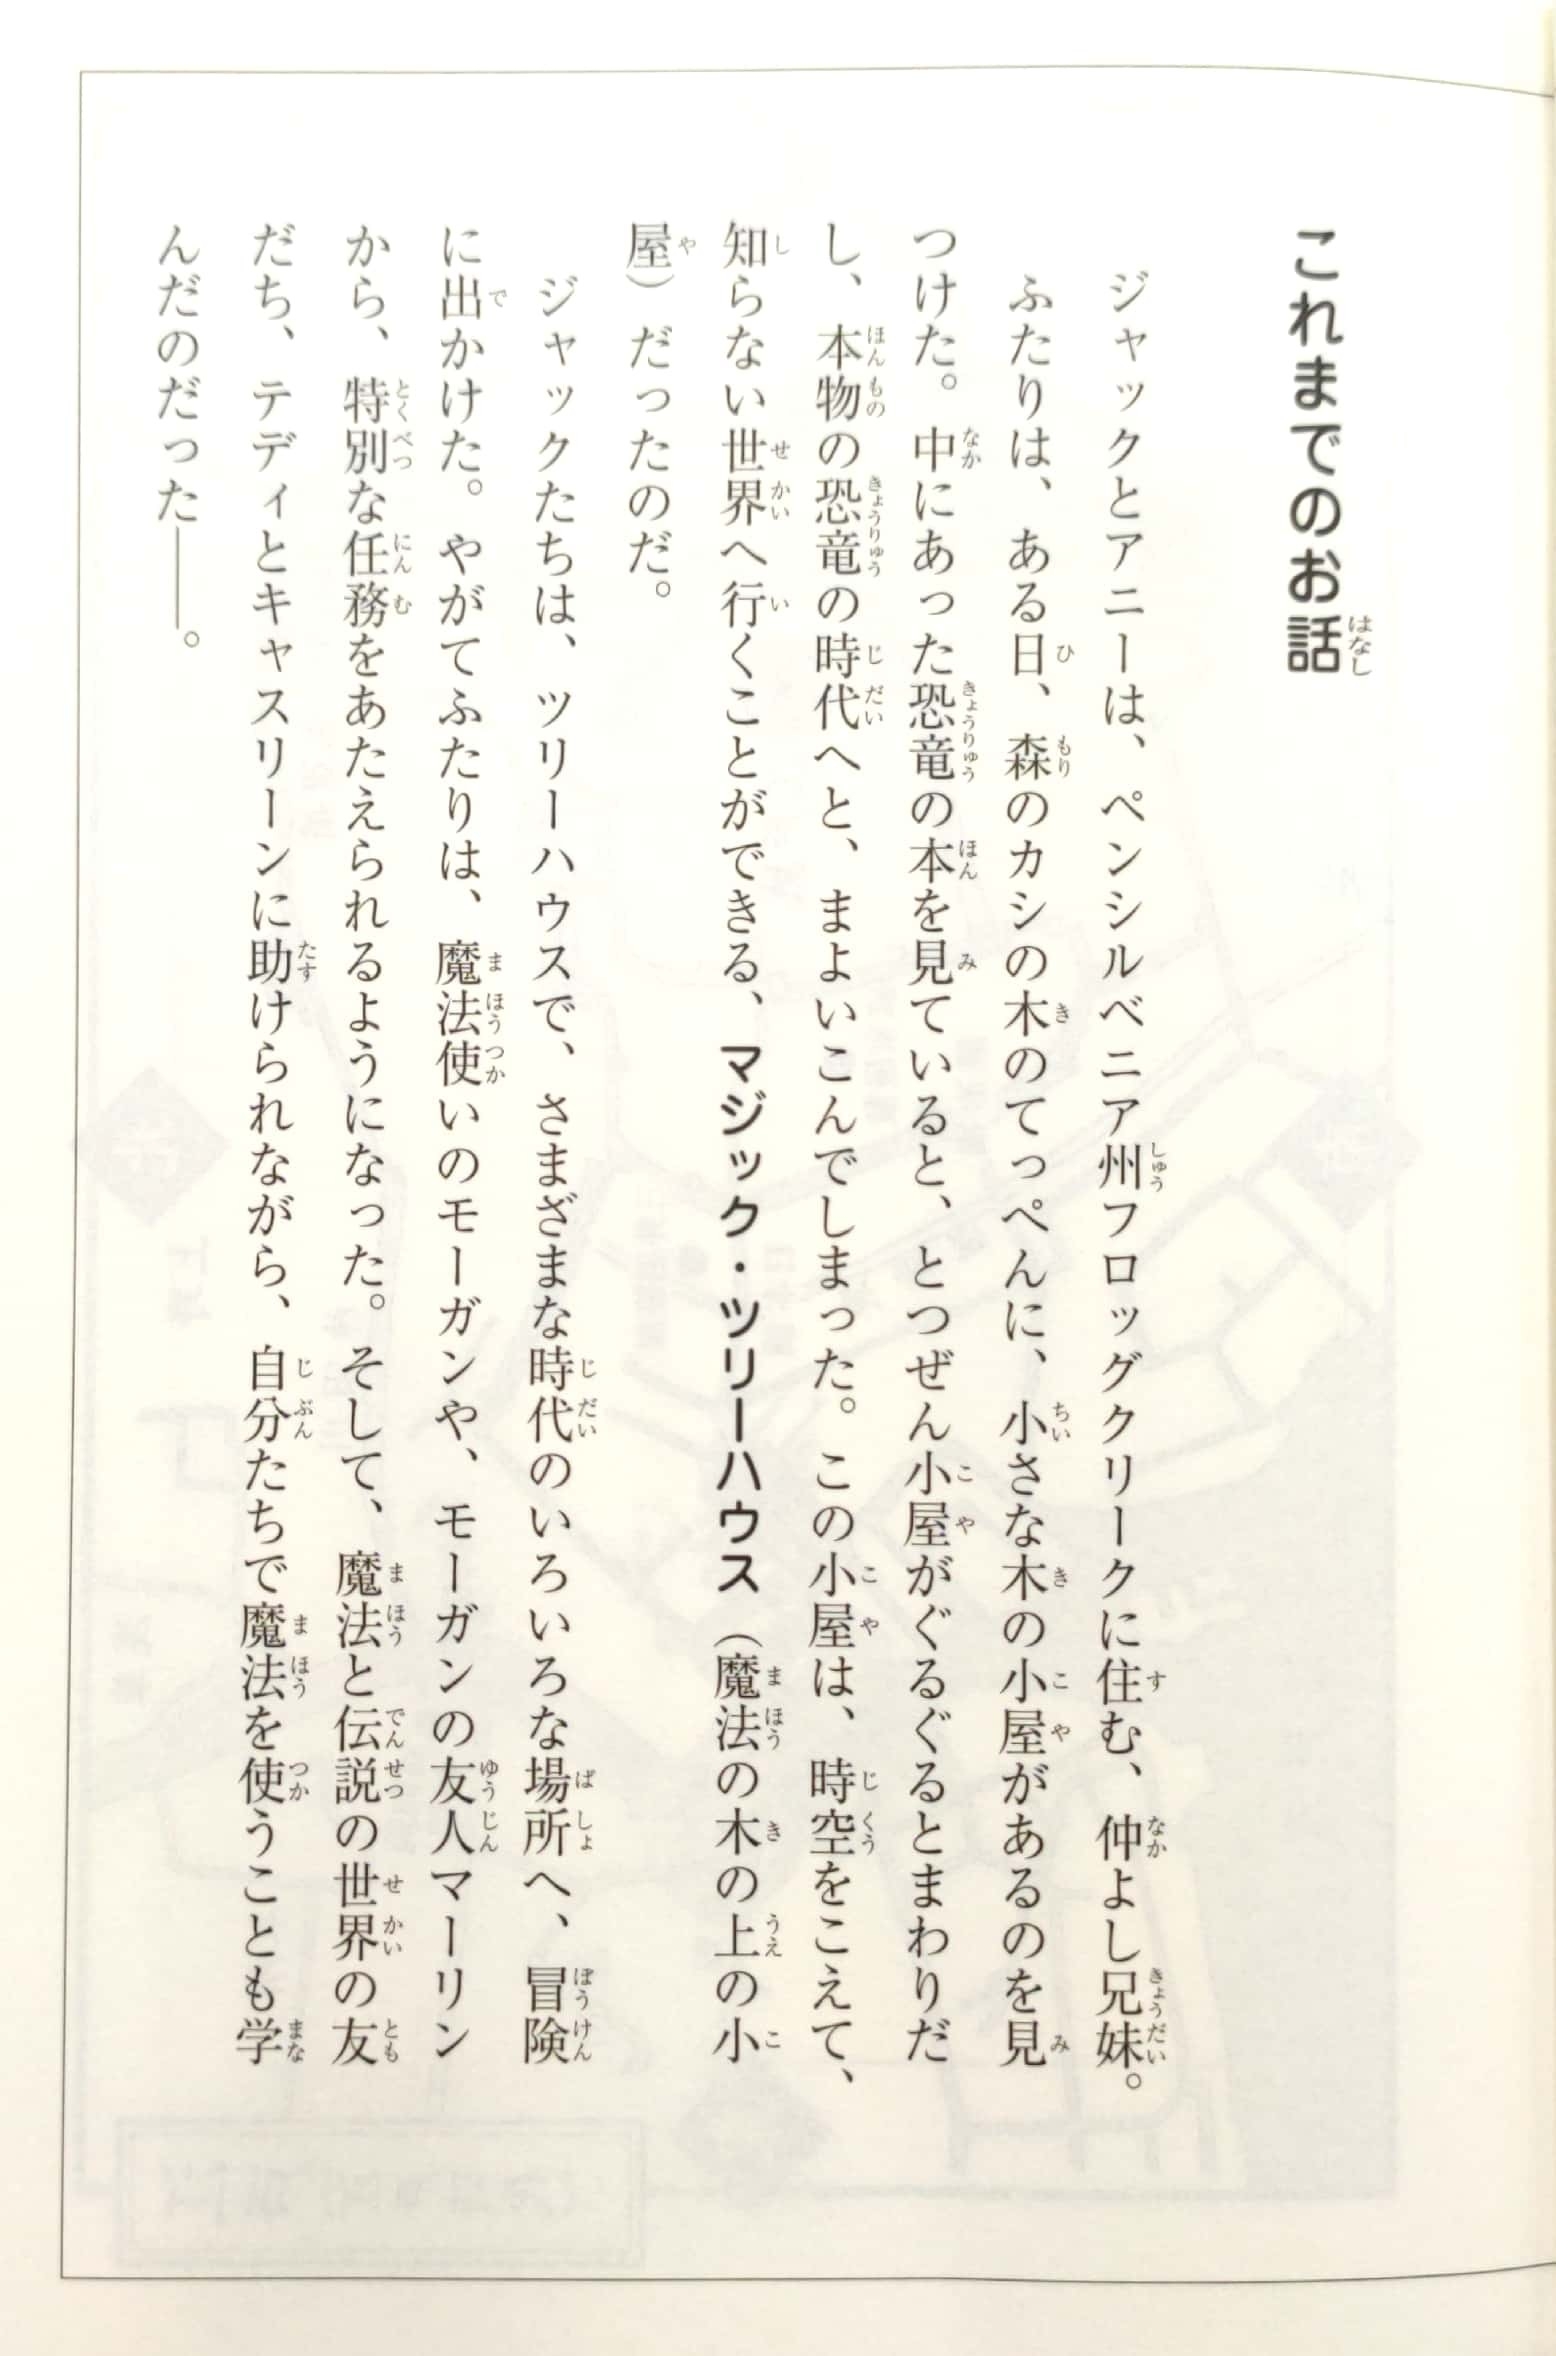 これまでのお話
ジャックとアニーは、ペンシルベニア州フロッグクリークに住む、仲よし兄妹。
ふたりは、ある日、森のカシの木のてっぺんに、小さな木の小屋があるのを見
つけた。中にあった恐竜の本を見ていると、とつぜん小屋がぐるぐるとまわりだ
し、本物の恐竜の時代へと、まよいこんでしまった。この小屋は、時空をこえて、
知らない世界へ行くことができる、マジック・ツリーハウス（魔法の木の上の小
屋）だったのだ。
ジャックたちは、ツリーハウスで、さまざまな時代のいろいろな場所へ、冒険
に出かけた。やがてふたりは、魔法使いのモーガンや、モーガンの友人マーリン
から、特別な任務をあたえられるようになった。そして、魔法と伝説の世界の友
だち、テディとキャスリーンに助けられながら、自分たちで魔法を使うことも学
んだのだった――。